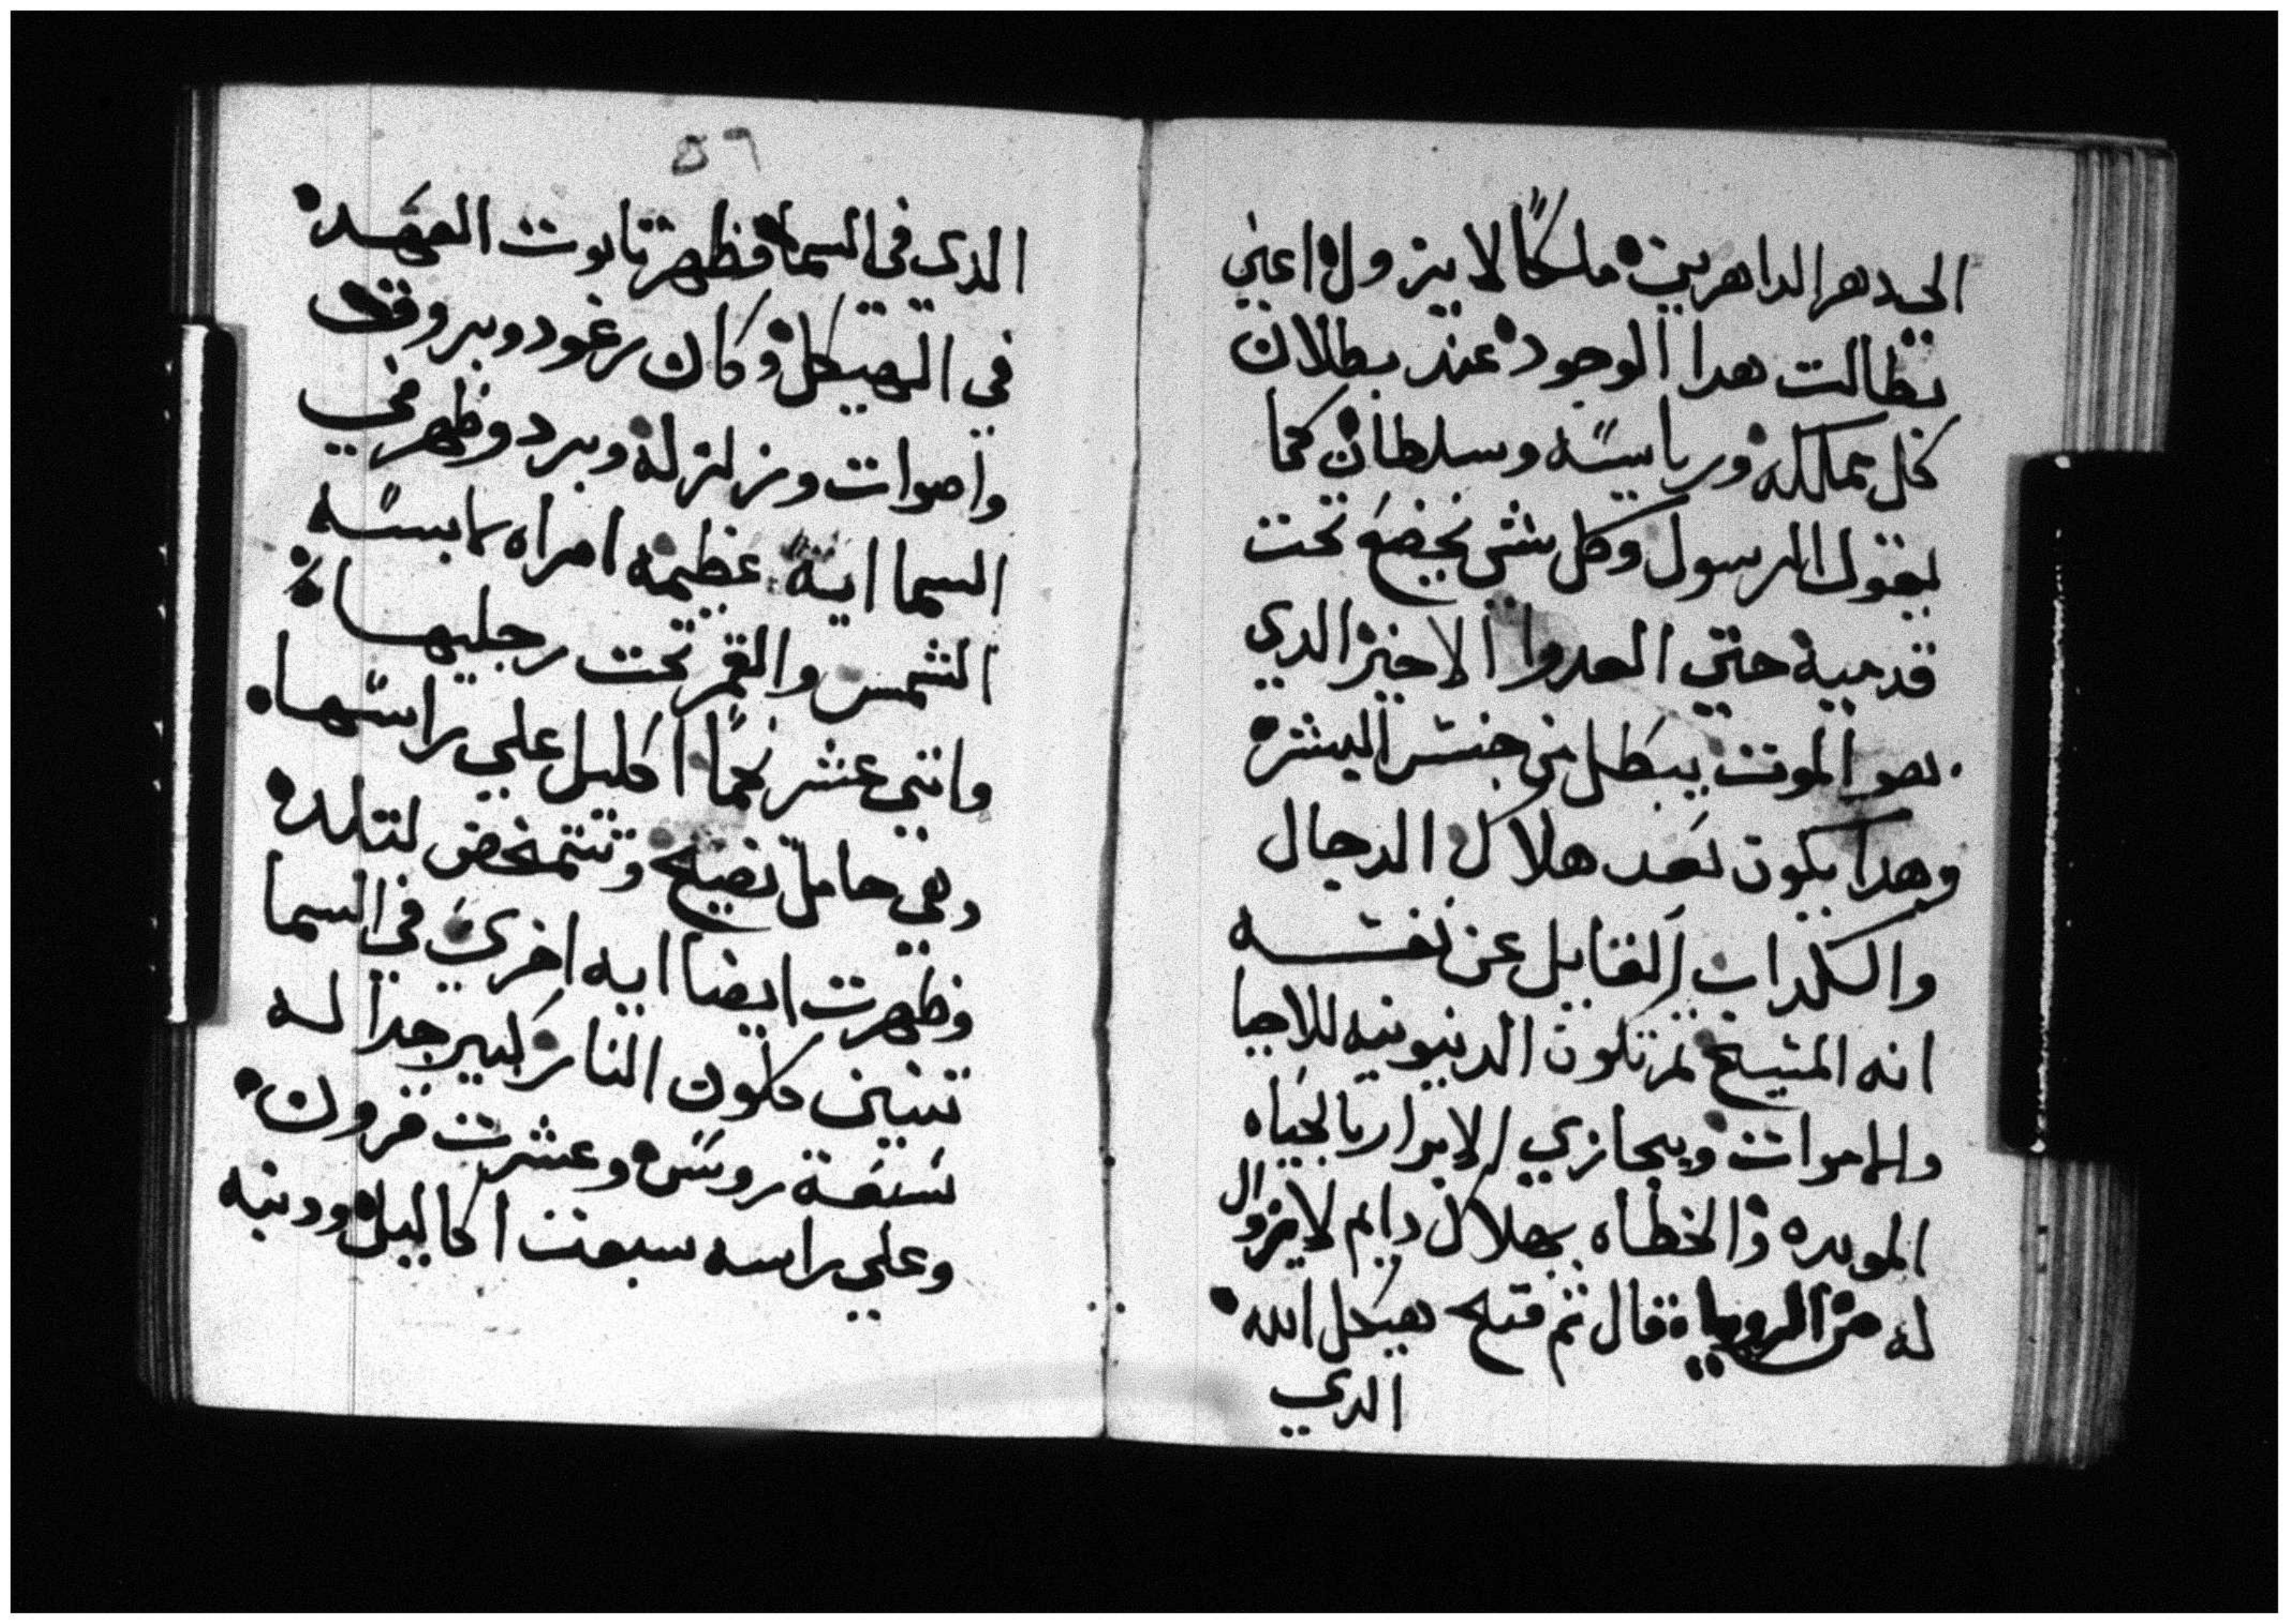 الي دهر الداهرين ملكًا لا يزول اعني
بطالت هدا الوجود عند بطلان
كل مملكه ورياسه وسلطان كما
يقول الرسول وكل شي يخضع تحت
قدميه حتي العدوا الاخير الدي
هو الموت يبطل من جنس البشر
وهدا يكون بعد هلاك الدجال
والكداب القايل عن نفسه
انه المسيح ثم تكون الدينونيه للاحيا
والاموات ويجازي الابرار بالحياه
الموبده والخطاه بهلاك دايم لا يزوال
له من الرويا قال ثم فتح هيكل الله
الدي
٥٦
الدي في السما فظهر تابوت العهد
في الهيكل وكان رعود وبروق
واصوات وزلزله وبرد وظهر في
السما ايه عظيمه امراه لابسه
الشمس والقمر تحت رجليها
واتني عشر نجمًا اكليل علي راسها
وهي حامل تصيح وتتمخض لتلد
وظهرت ايضا ايه اخري في السما
تنين كلون النار كبير جدا له
سبعة روس وعشرت قرون
وعلي راسه سبعت اكاليل ودنبه